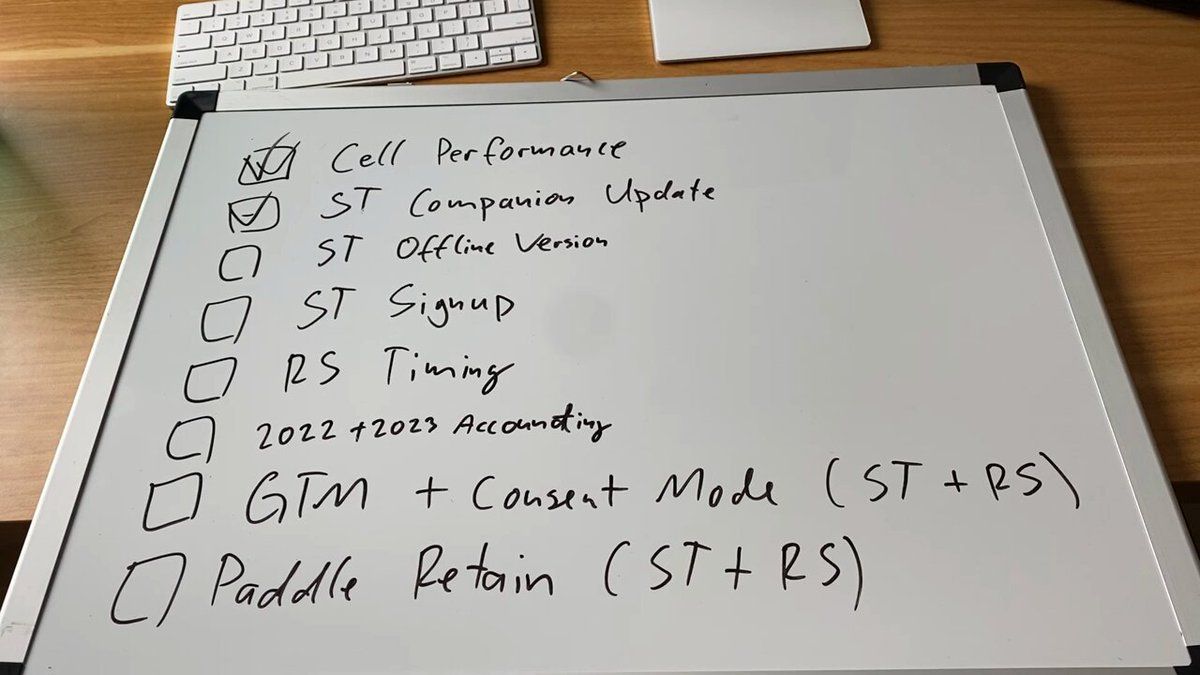 Cell Performance
ST Companion Update
ST Offline Version
ST Signup
RS Timing
2022 + 2023 Accounting
GTM + Consent Mode (ST + RS)
Paddle Retain (ST + RS)